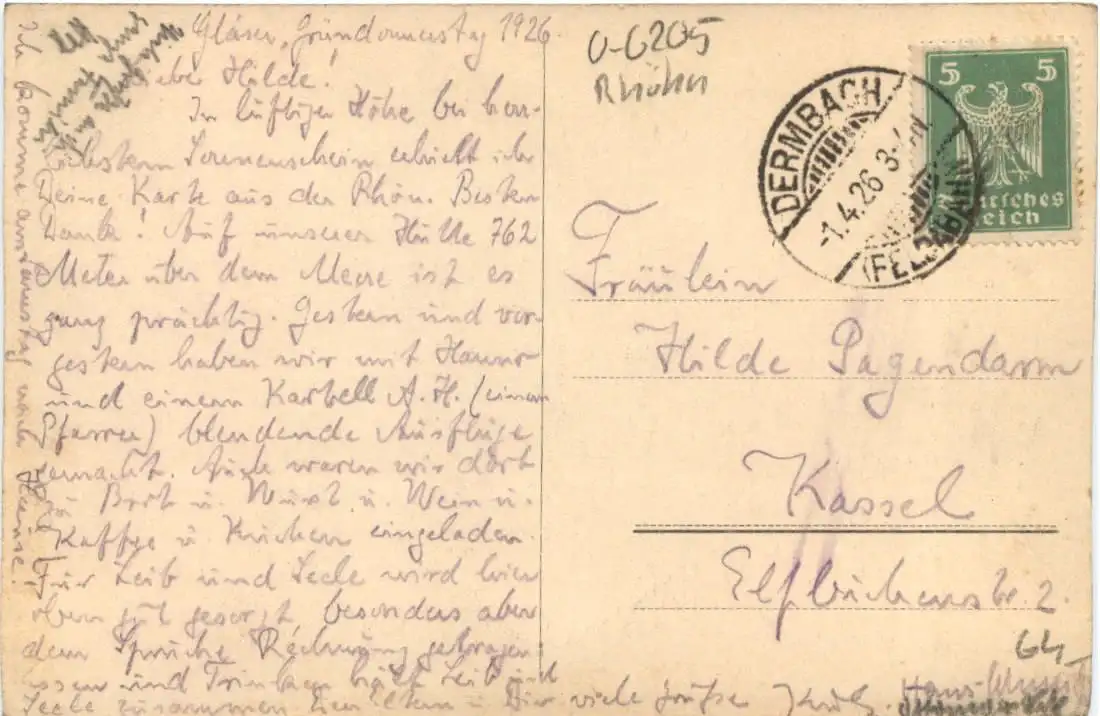 Gläser, Gründonnerstag 1926.
Liebe Hilde!
In luftiger Höhe bei herr-
lichstem Sonnenschein erhielt ich
Deine Karte aus der Rhön. Besten
Dank! Auf unserer Hütte 762
Meter über dem Meere ist es
ganz prächtig. Gestern und vor-
gestern haben wir mit
und einem Kartell A.H. (einem
Pfarrer) blendende Ausflüge
gemacht. Auch waren wir dort
zu Brot u. Wurst u. Wein u.
Kaffee u. Kuchen eingeladen.
Für Leib und Seele wird hier
oben gut gesorgt, besonders aber
dem Spruche Rechnung getragen
Essen und Trinken hält Leib und
Seele zusammen. Dir viele Grüße
Ich komme am nach Hause!
0-6205
Rhöhn
DERMBACH
-1.4.26 3-
(FELDABAHN)
5 5
Deutsches
Reich
Fräulein
Hilde Pagendarm
Kassel
Elfbuchenstr. 2.
64